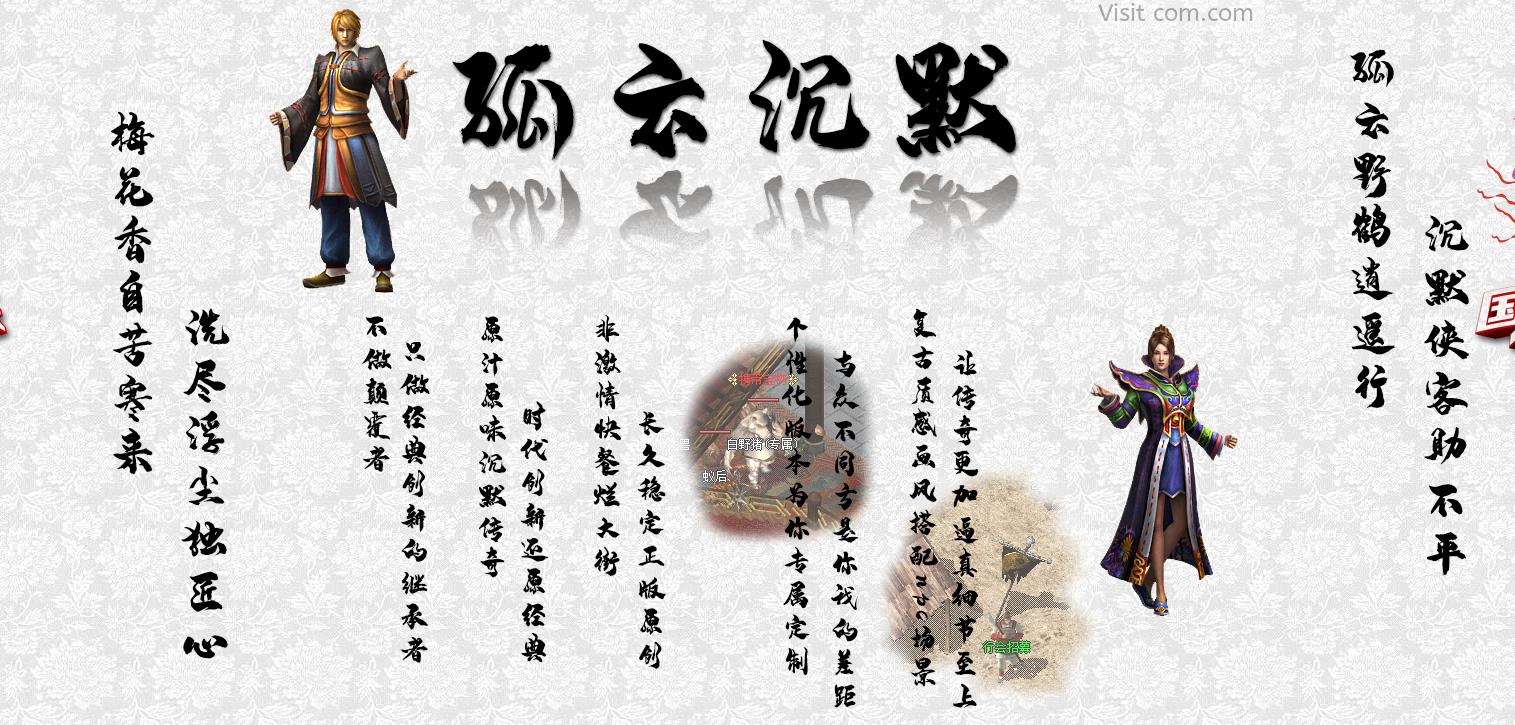 Visit com.com
孤云沉默
孤云野鹤逍遥行
沉默侠客助不平
梅花香自苦寒来
洗尽浮尘独匠心
不做颠覆者
只做经典创新的继承者
原汁原味沉默传奇
时代创新还原经典
非激情快餐烂大街
长久稳定正版原创
个性化版本为你专属定制
与众不同方是你我的差距
复古质感画风搭配npc场景
让传奇更加逼真细节至上
白野猪(专属)
蚁后
行会招募
国